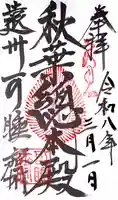 奉拝
令和八年
三月一日
秋葉総本殿
遠州可睡斎